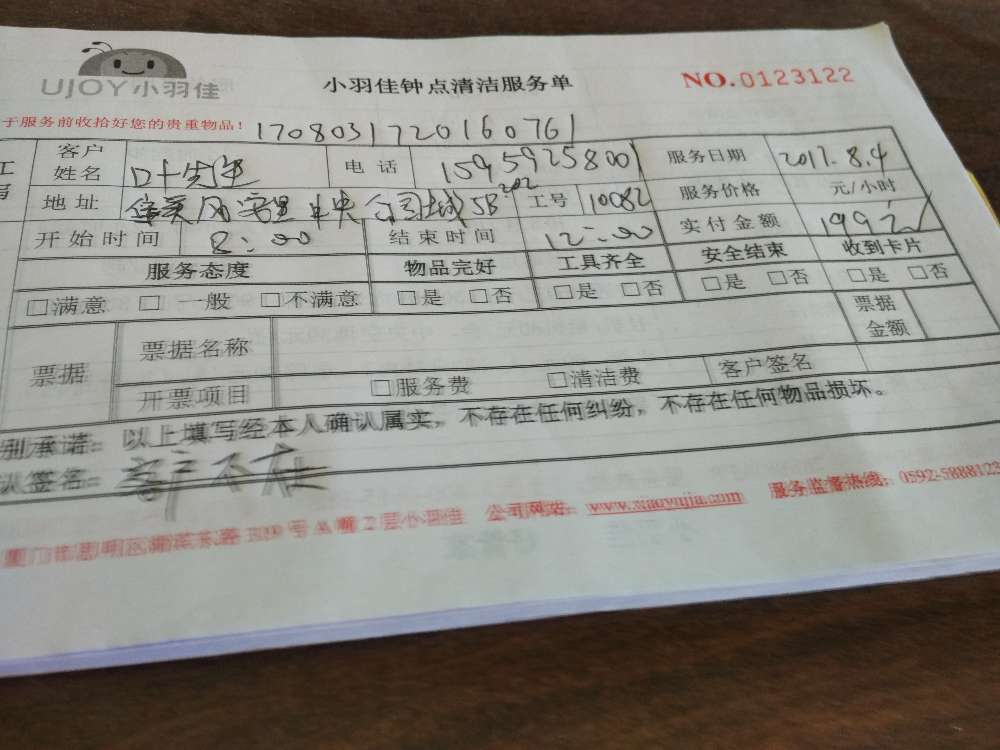 UJOY小羽佳
小羽佳钟点清洁服务单
NO.0123122
于服务前收拾好您的贵重物品！
1708031720160761
客户姓名 叶先生 电话 15959258001 服务日期 2017.8.4
地址 5B 202 工号 10082 服务价格 元/小时
开始时间 8:00 结束时间 12:00 实付金额 199元
服务态度 物品完好 工具齐全 安全结束 收到卡片
□满意 □一般 □不满意 □是 □否 □是 □否 □是 □否 □是 □否
票据 票据名称 票据金额
开票项目 □服务费 □清洁费 客户签名
别承诺：以上填写经本人确认属实，不存在任何纠纷，不存在任何物品损坏。
认签名：客户不在
2层小羽佳 公司网站：www.xiaoyujia.com 服务监督热线：0592-5888122